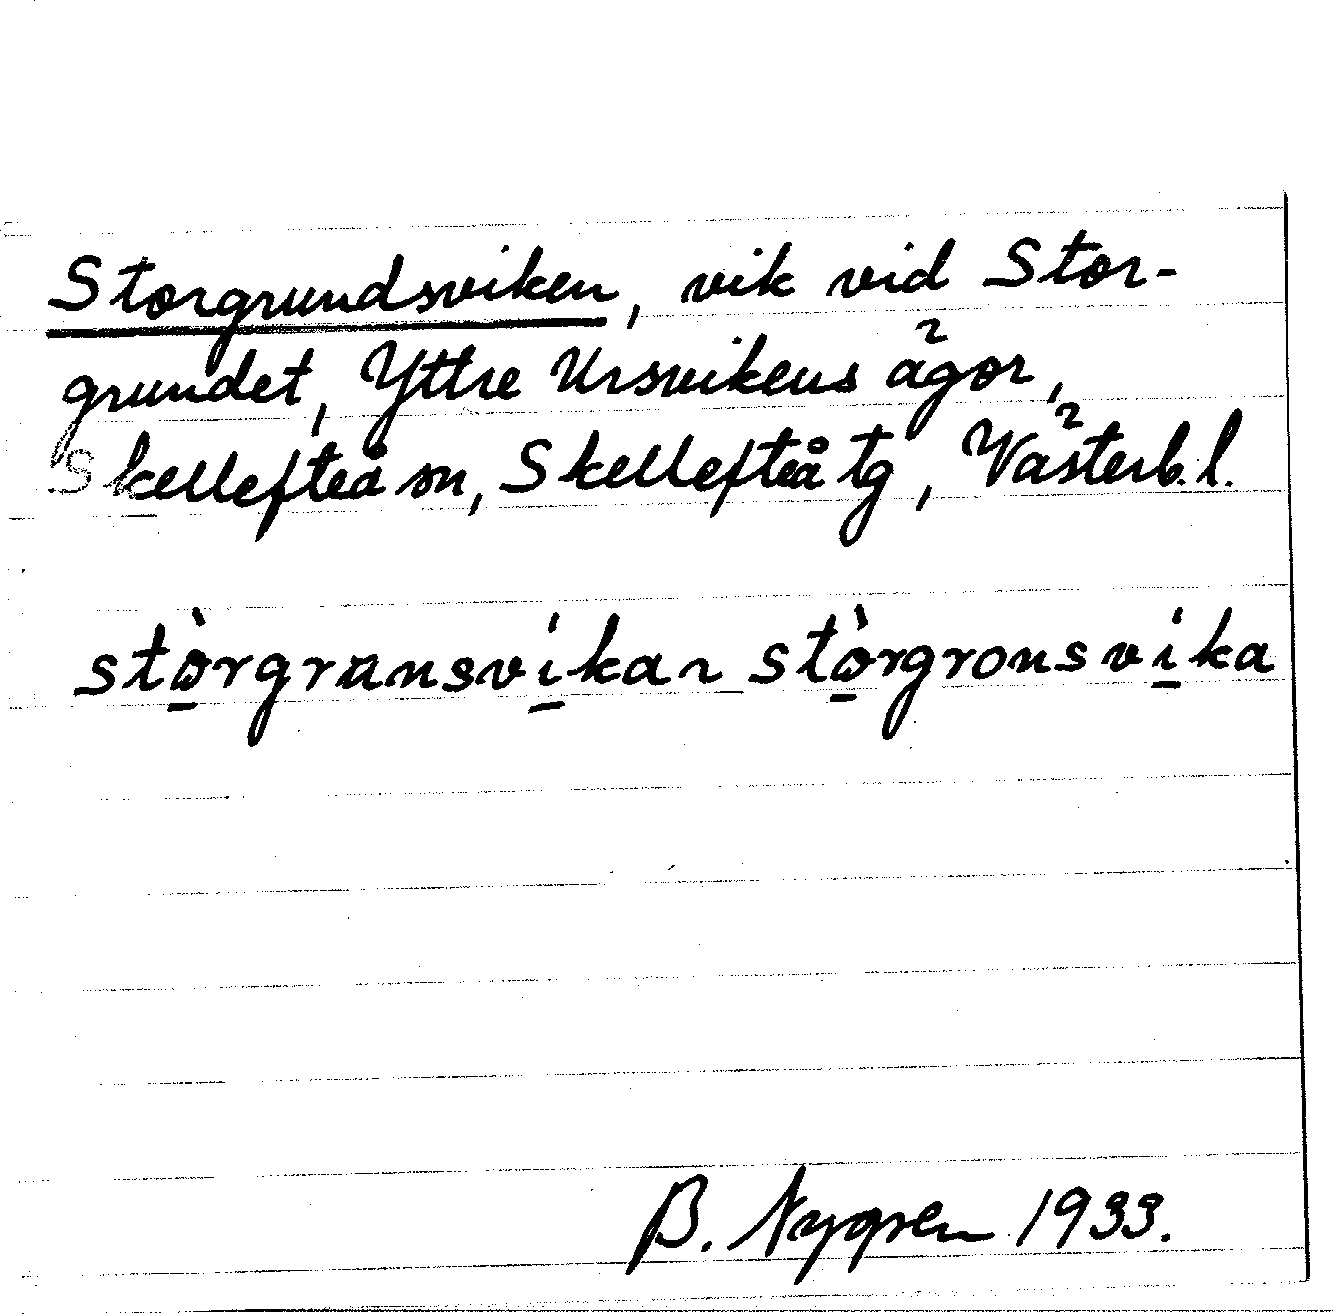 Storgrundsviken, vik vid Stor-
grundet, Yttre Ursvikens ägor,
Skellefteå sn, Skellefteå tg, Västerb. l.
stò̱rgransví̱ka ~ stò̱rgronsví̱ka
B. Nygren 1933.